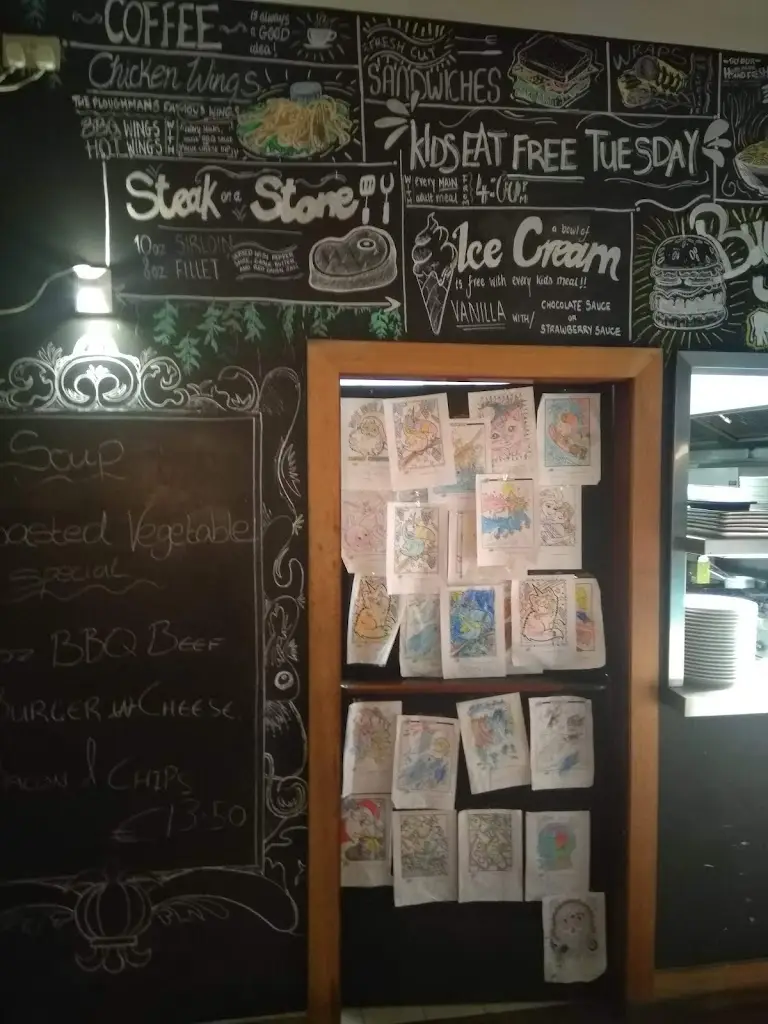 COFFEE
is always
a GOOD
idea!
Chicken Wings
THE PLOUGHMANS FAMOUS WINGS
BBQ WINGS
HOT WINGS
WITH
FRESH CUT
SANDWICHES
WRAPS
KIDS EAT FREE TUESDAY
WITH every MAIN
adult meal
FROM
4:00PM
Steak on a Stone
10oz SIRLOIN
8oz FILLET
Ice Cream
a bowl of
is free with every kids meal!!
VANILLA WITH/
CHOCOLATE SAUCE
OR
STRAWBERRY SAUCE
Soup
oasted Vegetable
Special
oz BBQ BEEF
BURGER W CHEESE
BACON & CHIPS
€13.50